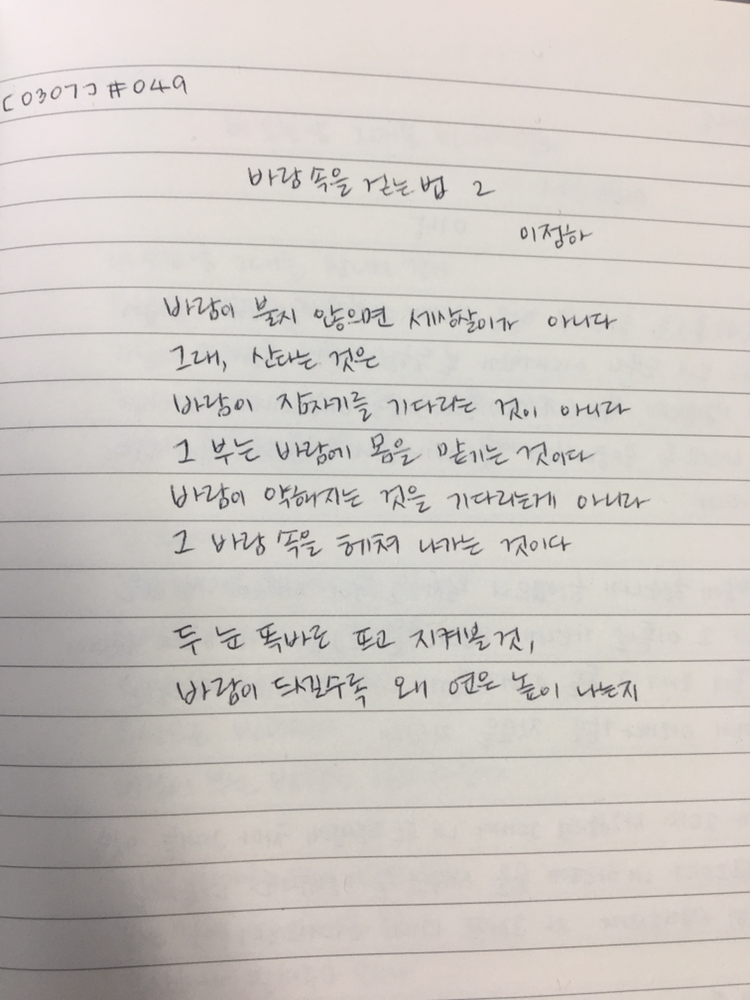 [0307] #049
바람 속을 걷는 법 2
이정하
바람이 불지 않으면 세상살이가 아니다
그래, 산다는 것은
바람이 잠자기를 기다리는 것이 아니라
그 부는 바람에 몸을 맡기는 것이다
바람이 약해지는 것을 기다리는게 아니라
그 바람 속을 헤쳐 나가는 것이다
두 눈 똑바로 뜨고 지켜볼 것,
바람이 드셀수록 왜 연은 높이 나는지